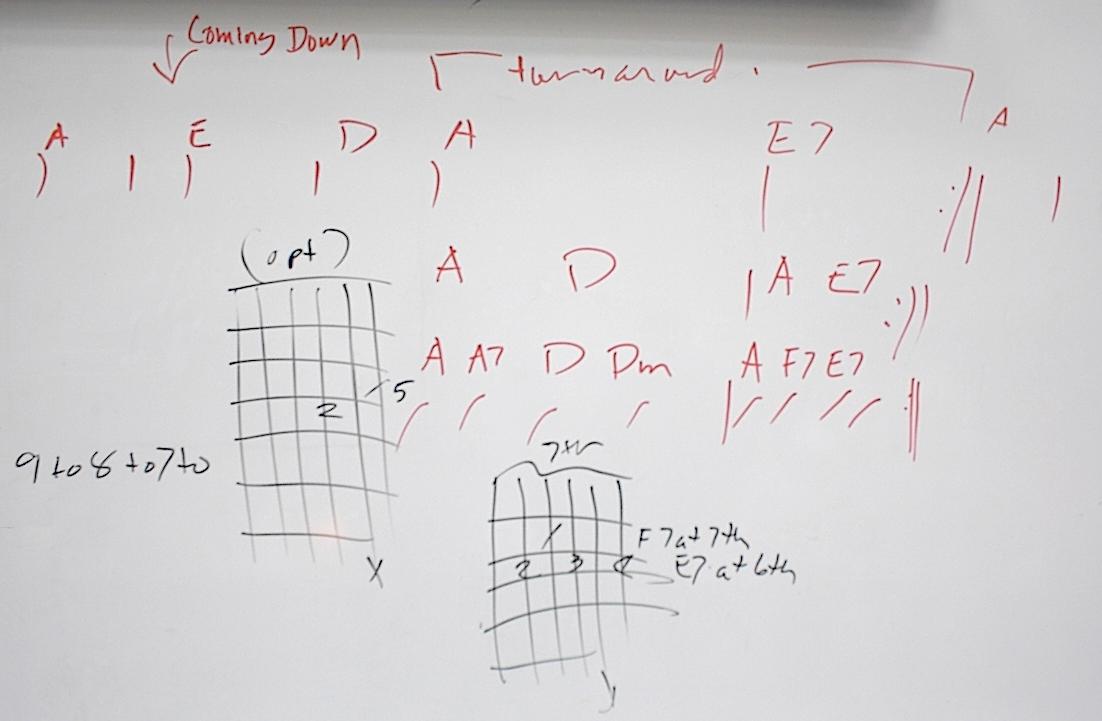 Coming Down
turnaround.
A E D A E7 A
(opt)
A D A E7
A A7 D Dm A F7 E7
5
2
9 to 8 to 7 to
7th
F7 at 7th
2 3 4 E7 at 6th
X
y